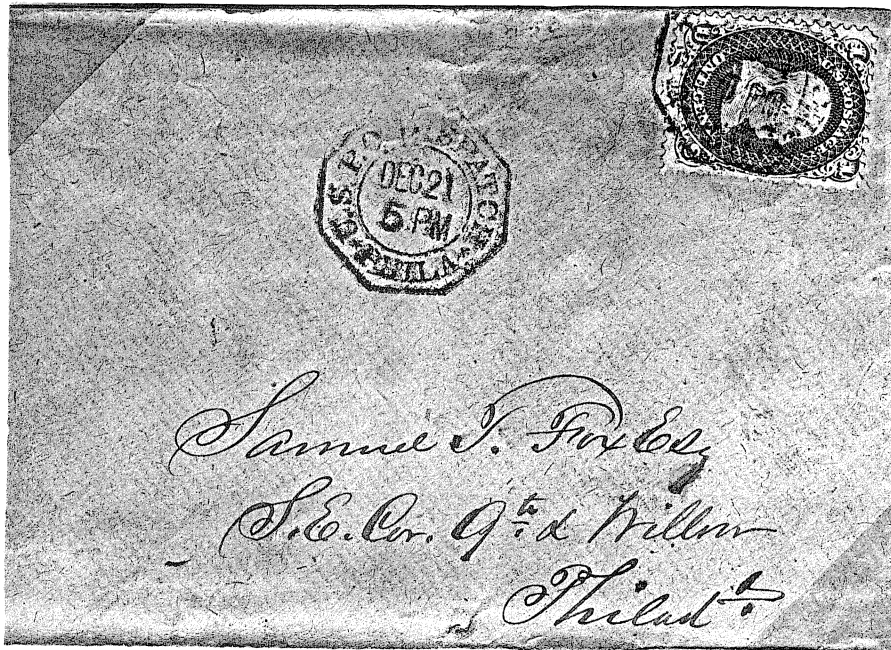 U.S. P.O. DISPATCH
DEC 21
5 PM
PHILA
U.S. POSTAGE
Samuel T. Fox Esq
S.E. Cor. 9th & Willow
Philada